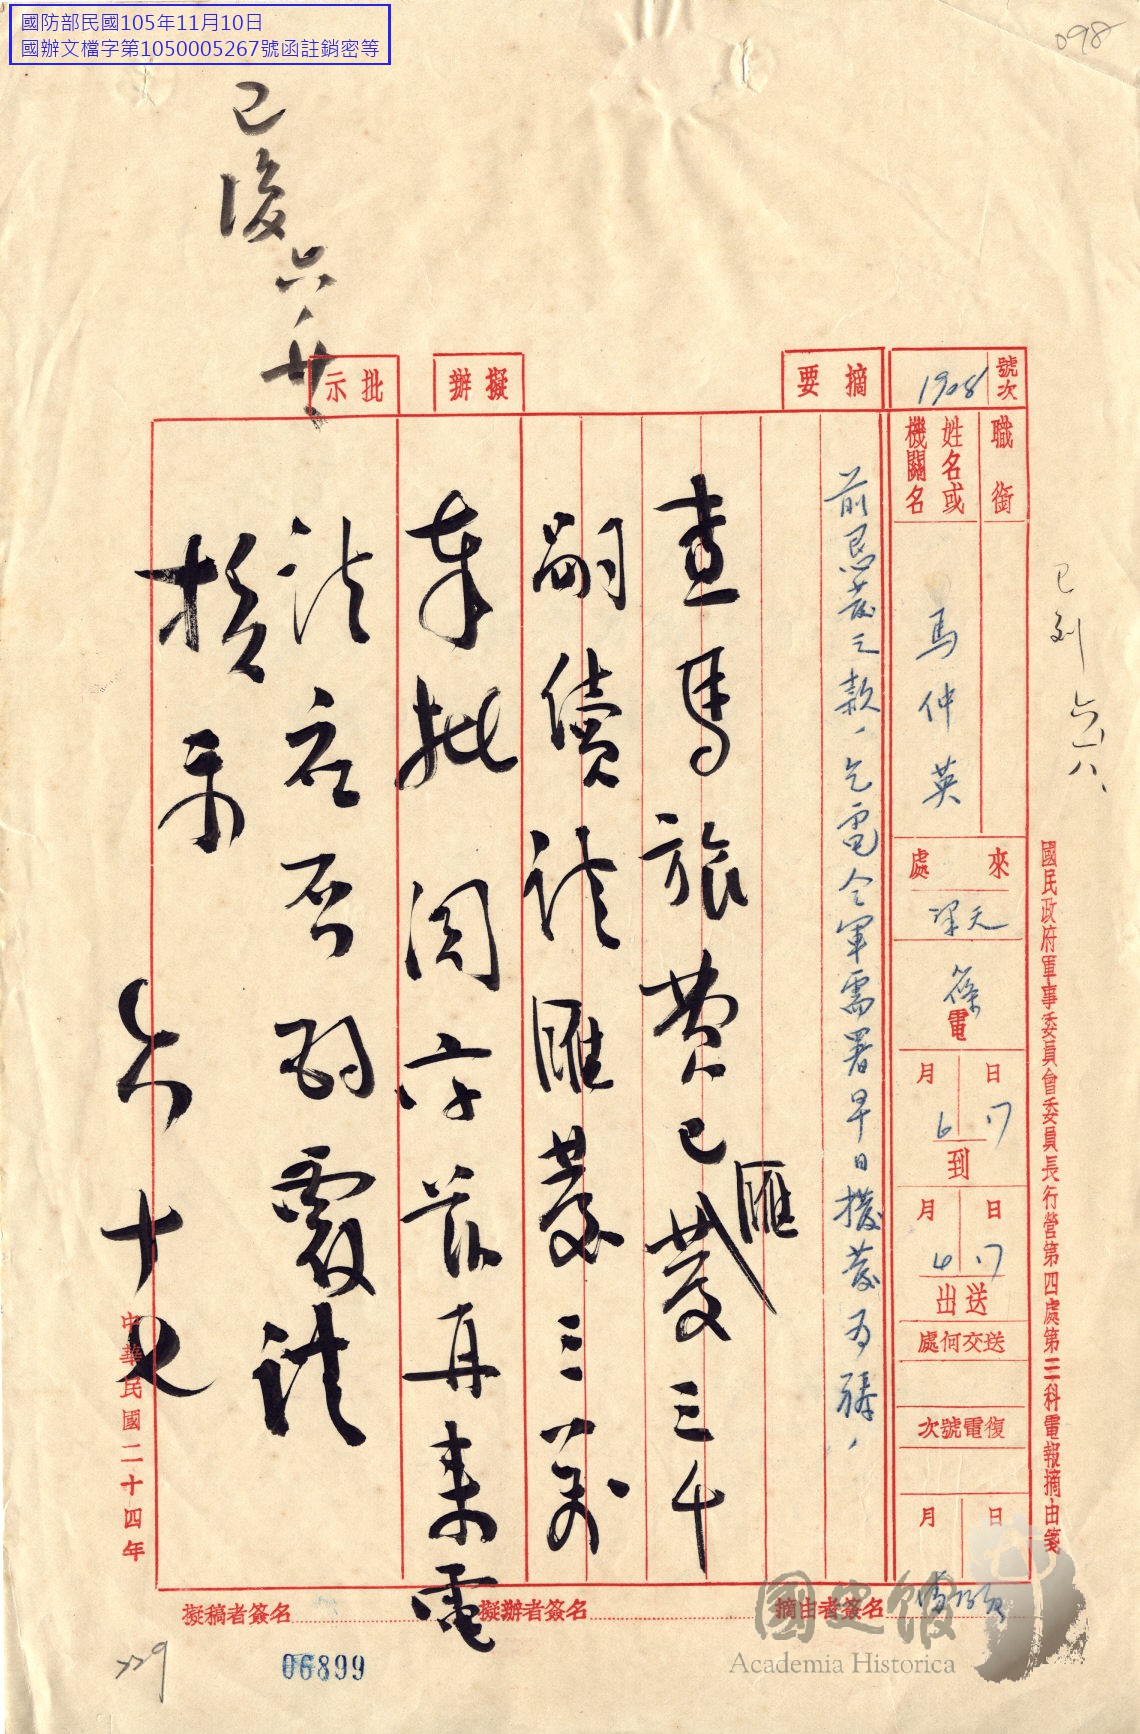 國防部民國105年11月10日
國辦文檔字第1050005267號函註銷密等
098
已復 六、廿
已到 六、八、
國民政府軍事委員會委員長行營第四處第三科電報摘由箋
號次
1908
職銜
姓名或
機關名
馬仲英
來處
天
篠電
日 17
月 6
到
日 17
月
送出
送交何處
復電號次
日
月
摘要
前懇發之款,乞電令軍需署早日撥發為禱,
擬辦
查馬旅費已匯發三千
嗣續請匯發三萬
奉批閱字茲再來電
請
應否酌覆請
核示
六 十七
批示
中華民國二十四年
摘由者簽名
擬辦者簽名
擬稿者簽名
06899
229
國史館
Academia Historica